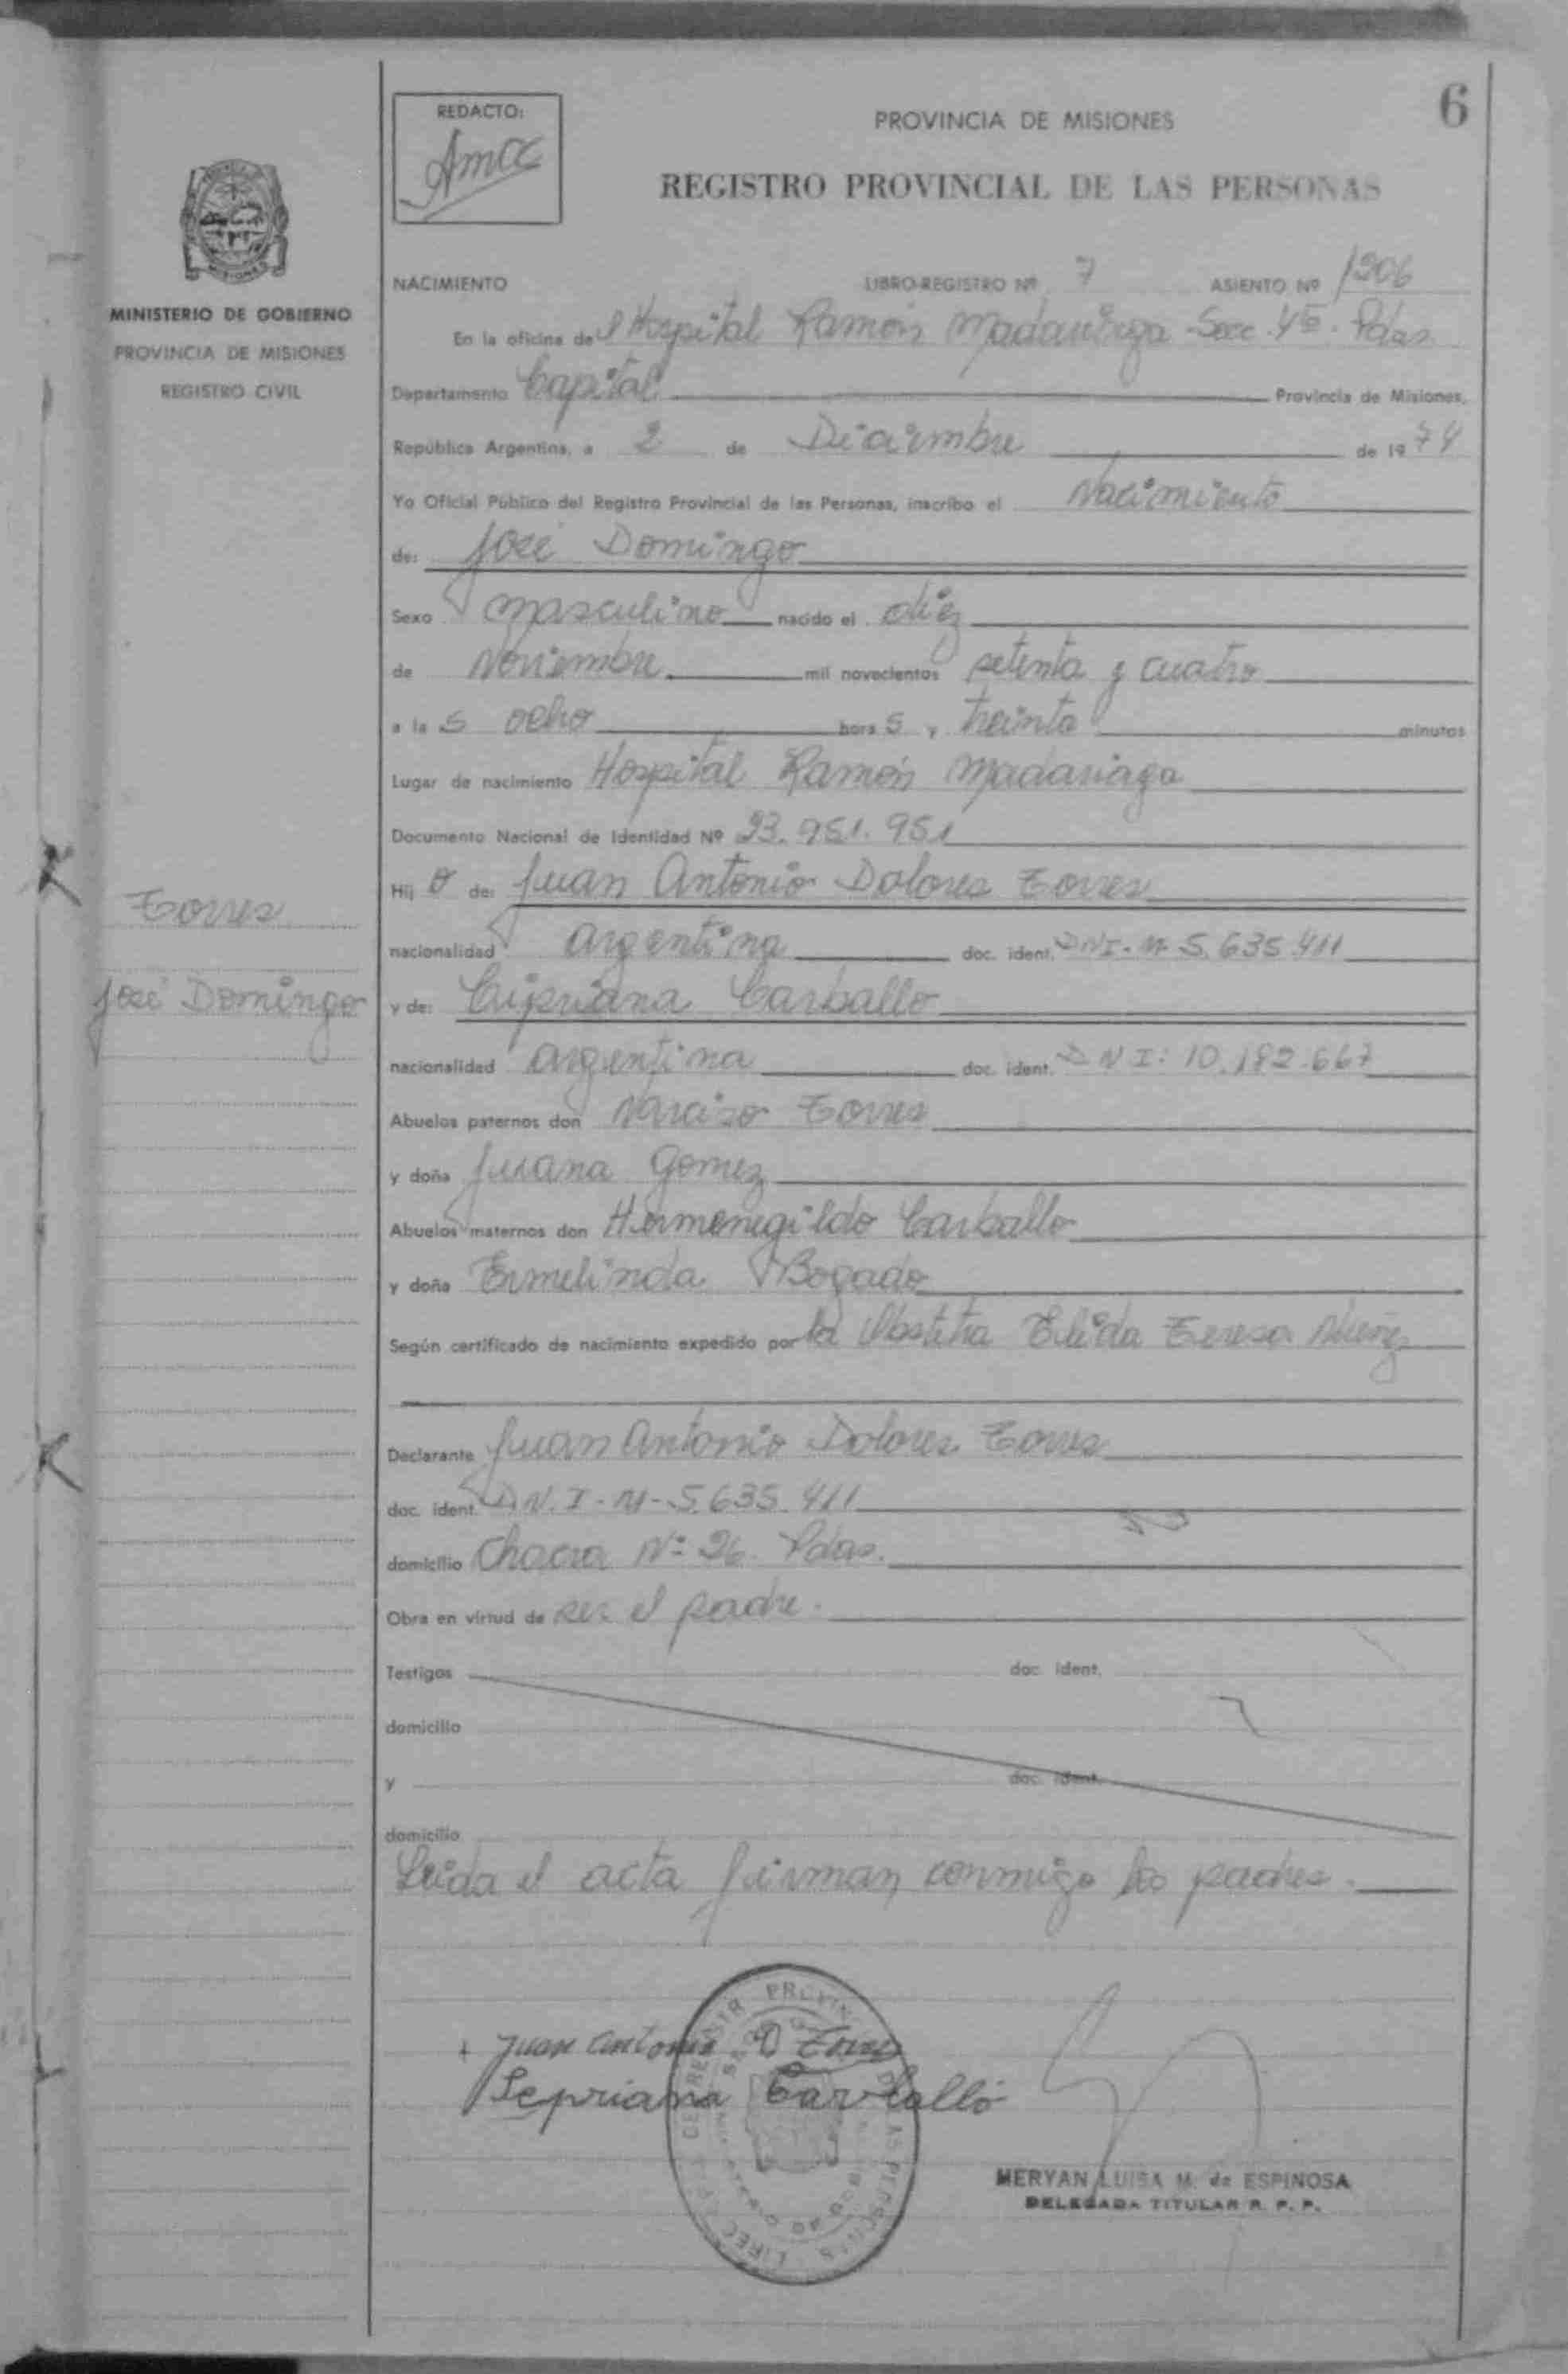 6
REDACTO:
PROVINCIA DE MISIONES
REGISTRO PROVINCIAL DE LAS PERSONAS
MINISTERIO DE GOBIERNO
PROVINCIA DE MISIONES
REGISTRO CIVIL
NACIMIENTO LIBRO-REGISTRO Nº 7 ASIENTO Nº 1906
En la oficina del Hospital Ramón Madariaga - Secc. 4ta. Pdas
Departamento Capital Provincia de Misiones,
República Argentina, a 2 de Diciembre de 1974
Yo Oficial Público del Registro Provincial de las Personas, inscribo el Nacimiento
de: José Domingo
Sexo masculino nacido el diez
de Noviembre mil novecientos setenta y cuatro
a las ocho horas y treinta minutos
Lugar de nacimiento Hospital Ramón Madariaga
Documento Nacional de Identidad Nº 23.951.951
Hijo de: Juan Antonio Dolores Torres
Torres
nacionalidad argentina doc. ident. DNI-M-5.635.411
José Domingo
y de: Cipriana Carballo
nacionalidad argentina doc. ident. DNI: 10.182.667
Abuelos paternos don Narciso Torres
y doña Juana Gomez
Abuelos maternos don Hermenegildo Carballo
y doña Ermelinda Bogado
Según certificado de nacimiento expedido por la Obstetra Elida Teresa
Declarante Juan Antonio Dolores Torres
doc. ident. D.N.I-M-5.635.411
domicilio Chacra Nº 26. Pdas.
Obra en virtud de ser el padre.
Testigos doc. ident.
domicilio
y doc. ident.
domicilio
Leida el acta firman conmigo los padres.
Juan Antonio D Torres
Sepriana Carballo
MERYAN LUISA M. de ESPINOSA
DELEGADA TITULAR R. P. P.